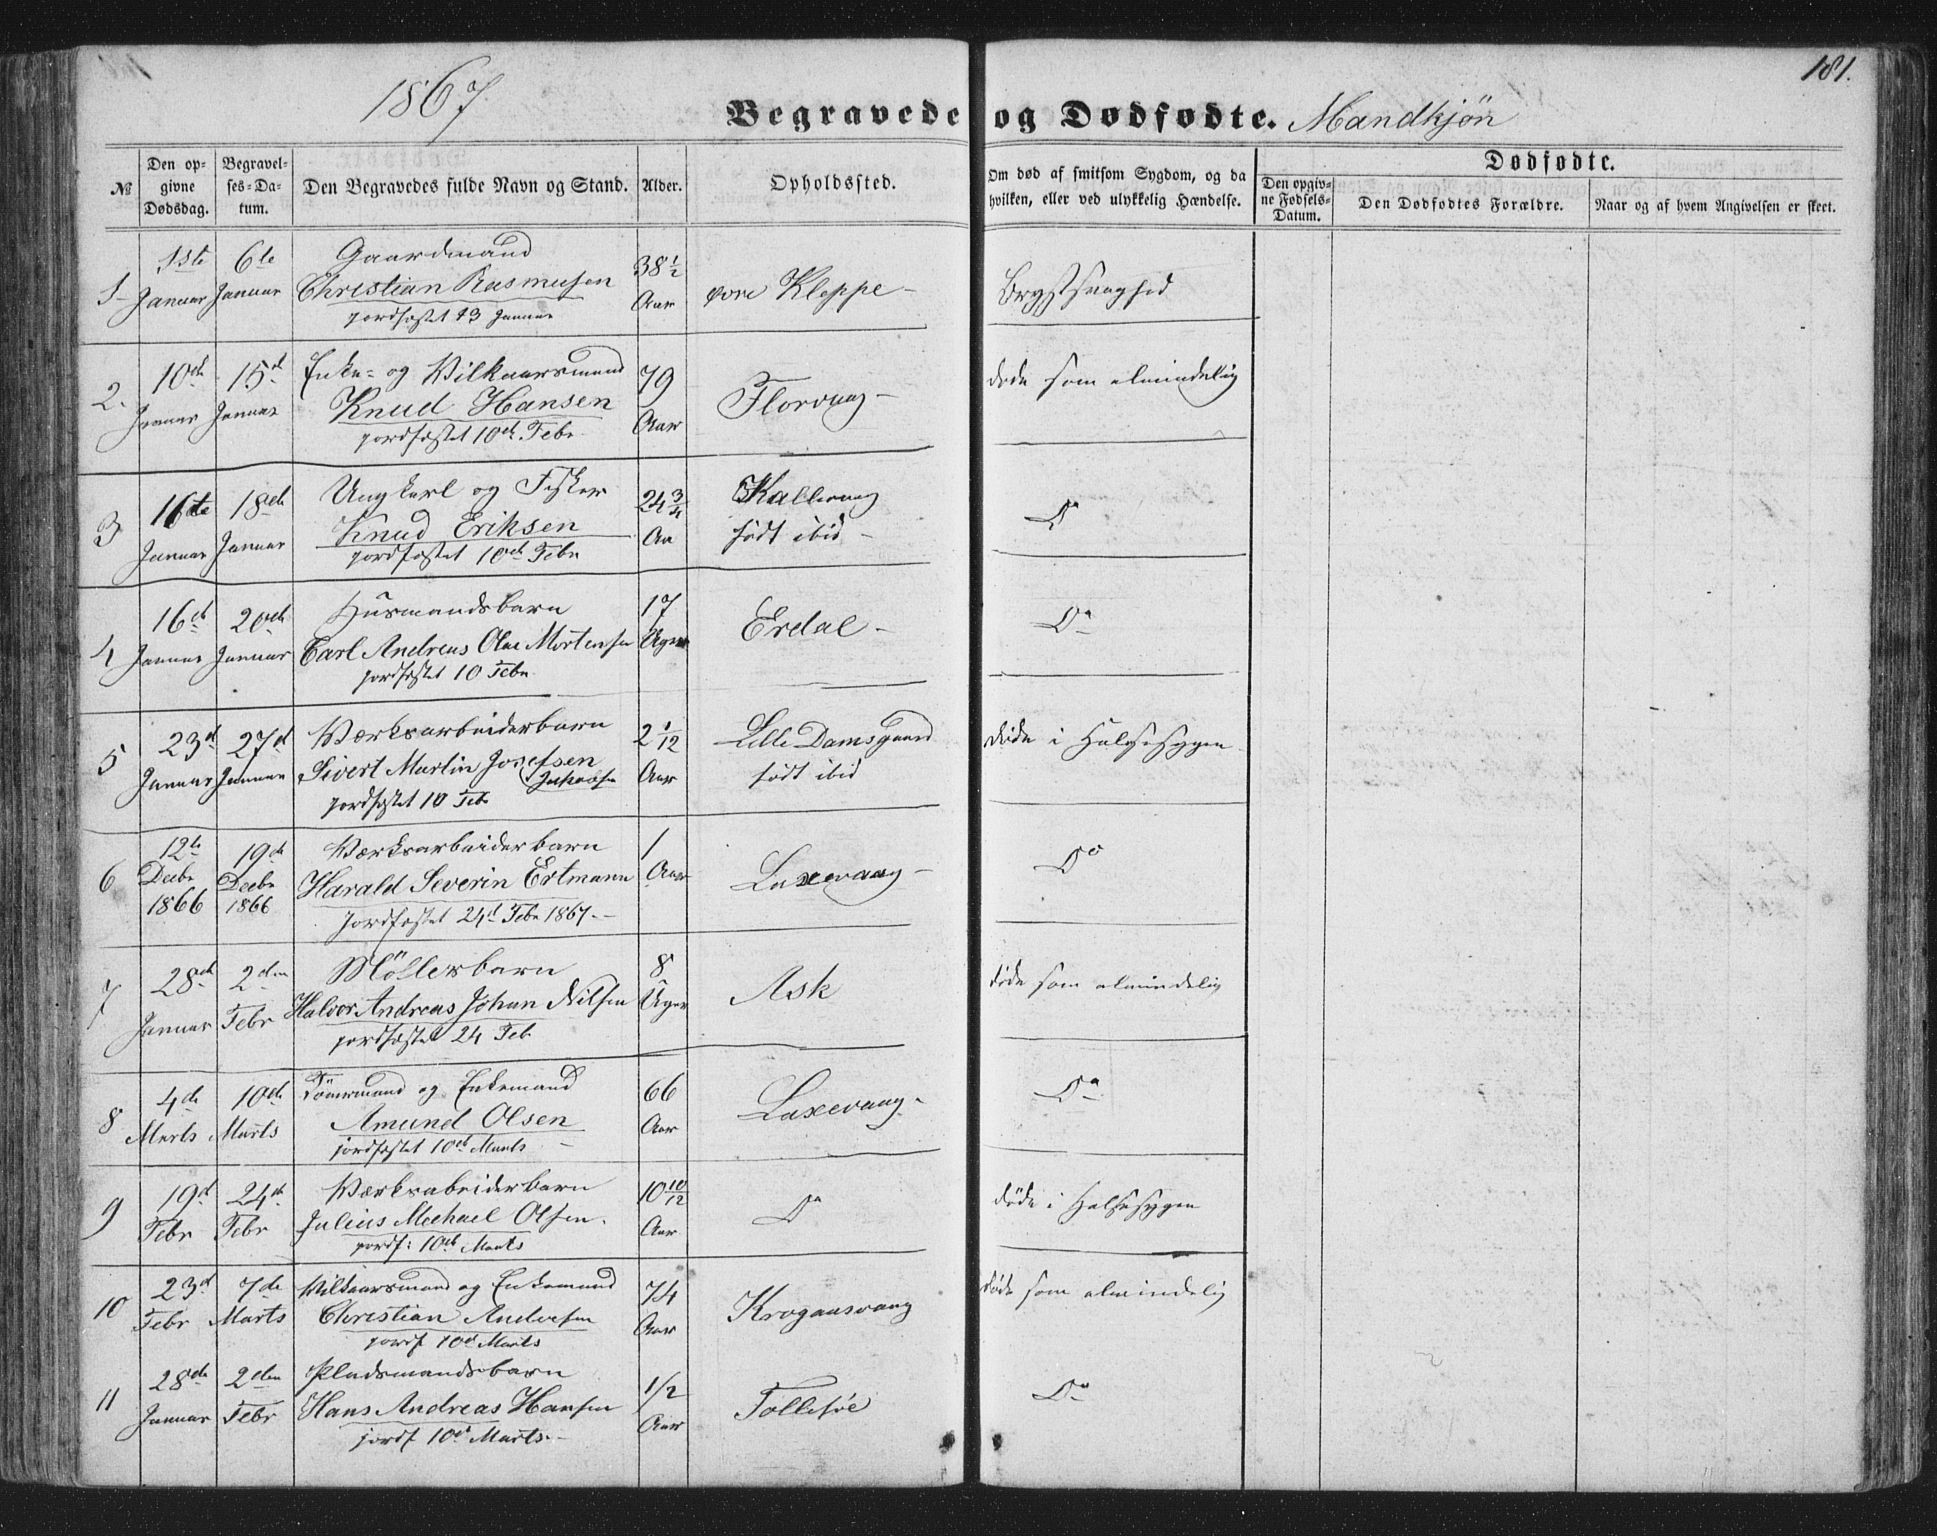 181.
1867
Begravede og Dødfødte. Mandkjøn
№
Den opgivne Dødsdag.
Begravelses-Datum.
Den Begravedes fulde Navn og Stand.
Alder.
Opholdssted.
Om død af smitsom Sygdom, og da hvilken, eller ved ulykkelig Hændelse.
Dødfødte.
Den opgivne Fødsels-Datum.
Den Dødfødtes Forældre.
Naar og af hvem Angivelsen er skeet.
1 1ste Januar 6te Januar Gaardmand 38 1/2 Aar øvre Kleppe Brystsvaghed
Christian Rasmusen
jordfæstet 13 Januar
2. 10de Januar 15d Januar Enke- og Vilkaarsmand 79 Aar Florvaag døde som almindelig
Knud Hansen
jordfæstet 10de Febr
3 16de Januar 18de Januar Ungkarl og Fisker 24 3/4 Aa Kallevaag Do
Knud Eriksen født ibid
jordfæstet 10de Febr
4 16d Januar 20de Januar Husmandsbarn 17 Uger Erdal Do
Carl Andreas Olai Mortensen
jordfæstet 10 Febr
5 23d Januar 27d Januar Værksarbeiderbarn 2 1/12 Aar Lille Damsgaard døde i Halssygen
Sivert Martin Josefsen født ibid
jordfæstet 10 Feb
6 12te Decbr 1866 19de Decbr 1866 Værksarbeiderbarn 1 Aar Laxevaag Do
Harald Severin Ertmann
jordfæstet 24d Febr 1867
7 28de Januar 2den Febr Möllerbarn 8 Uger Ask døde som almindelig
Halvor Andreas Johan Nilsen
jordfæstet 24 Feb
8 4de Marts 10de Marts Tömmermand og Enkemand 66 Aar Laxevaag Do
Amund Olsen
jordfæstet 10de Marts
9 19d Febr 24de Febr Værksabeiderbarn 10 10/12 Aar Do døde i Halssygen
Julius Mechael Olsen
jordf: 10de Marts
10 23d Febr 7de Marts Vilkaarsmand og Enkemand 74 Aar Krogaasvaag døde som almindelig
Christian Andersen
jordf 10d Marts
11 28de Januar 2den Febr Pladsmandsbarn 1/2 Aar Follesöe Do
Hans Andreas Hansen
jordf 10d Marts